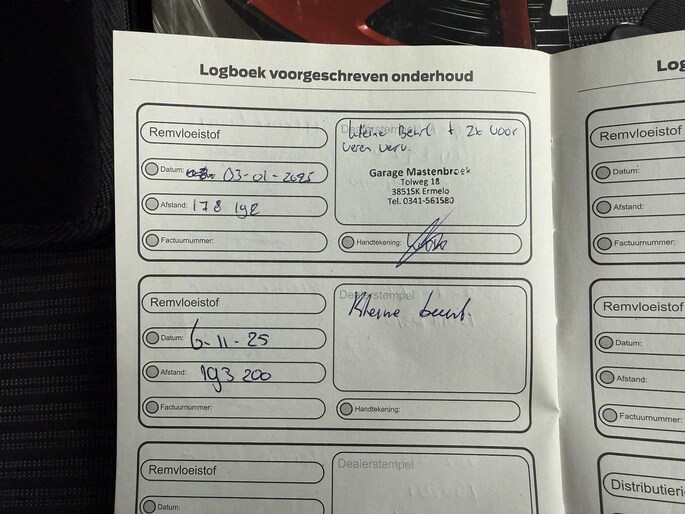 Logboek voorgeschreven onderhoud
Remvloeistof
Dealerstempel
kleine Beurt + 2x voor
veren verv.
Datum: 03-01-2025
Garage Mastenbroek
Tolweg 18
3851SK Ermelo
Tel. 0341-561580
Afstand: 178 192
Factuurnummer:
Handtekening:
Remvloeistof
Dealerstempel
Kleine beurt.
Datum: 6-11-25
Afstand: 193 200
Factuurnummer:
Handtekening:
Remvloeistof
Dealerstempel
Datum:
Log
Remvloeistof
Datum:
Afstand:
Factuurnummer:
Remvloeistof
Datum:
Afstand:
Factuurnummer:
Distributieri